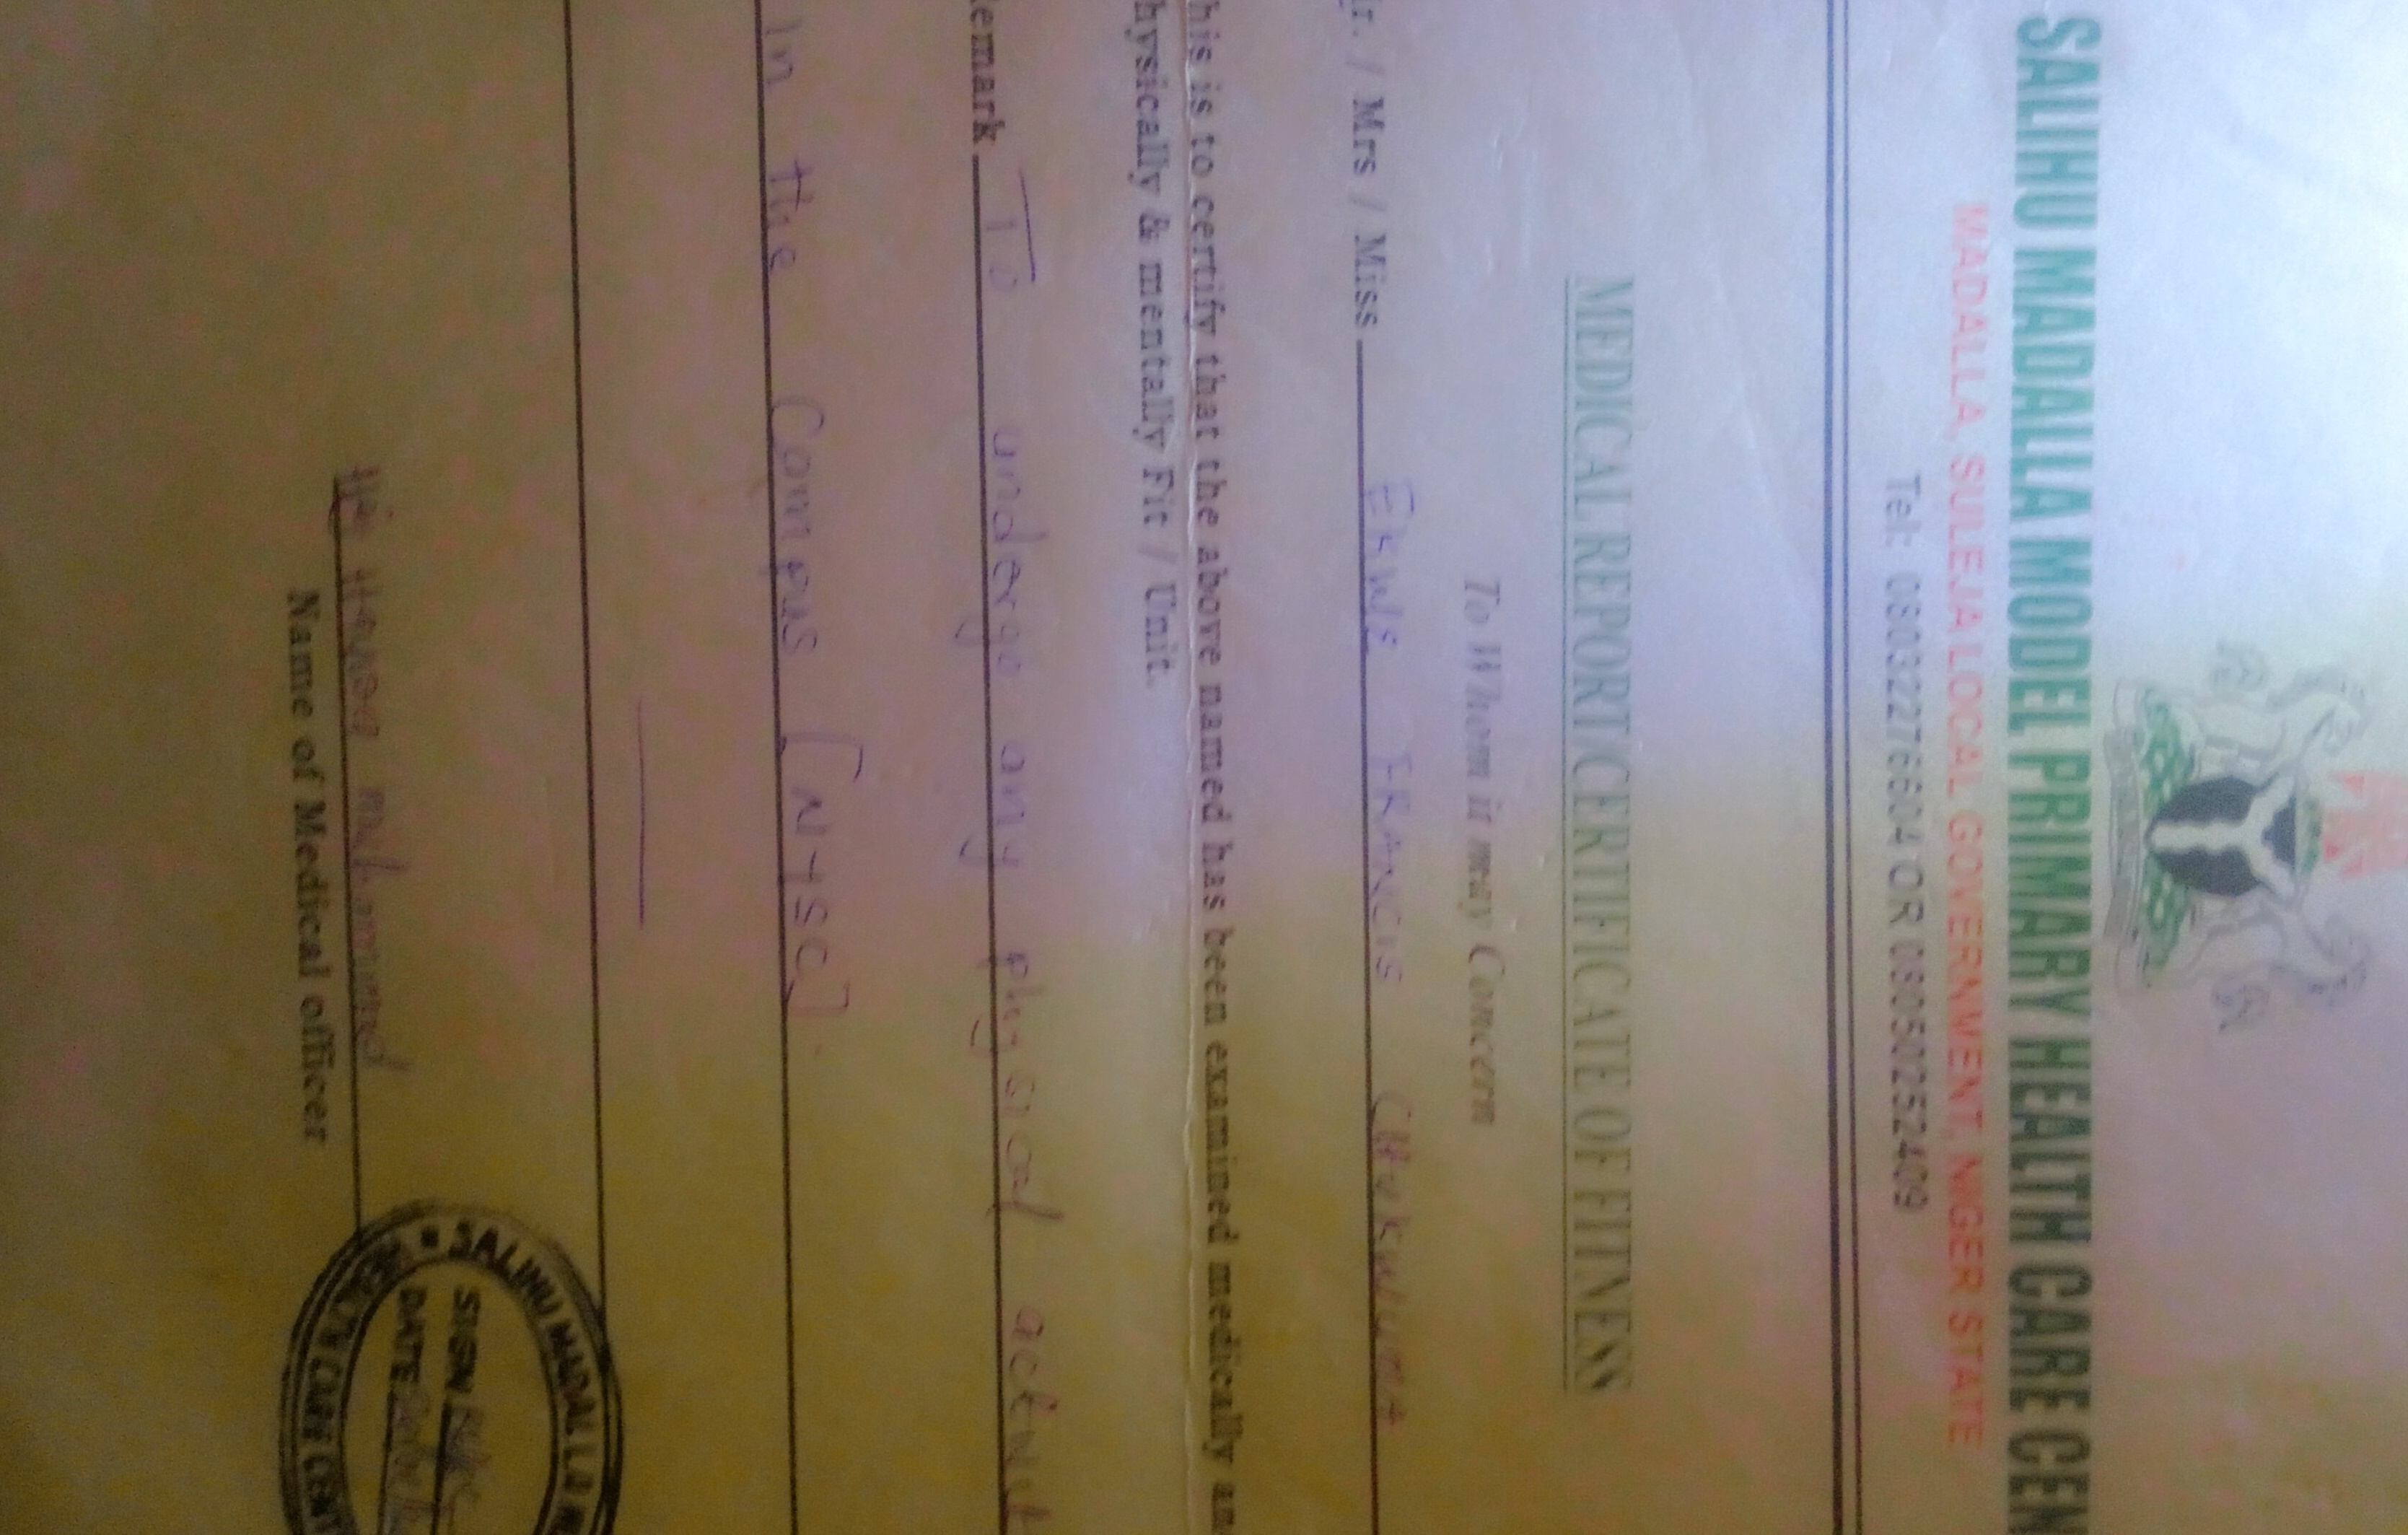 SALIHU MADALLA MODEL PRIMARY HEALTH CARE CEN
MADALLA, SULEJA LOCAL GOVERNMENT, NIGER STATE
Tel: 08032276604 OR 08050252409
MEDICAL REPORT/CERTIFICATE OF FITNESS
To Whom it may Concern
r. / Mrs / Miss EKWE FRANCIS CHUKWUMA
his is to certify that the above named has been examined medically an
hysically & mentally Fit / Unit.
emark To undergo any physical activit
In the Compus [NYSC].
muhammed
Name of Medical officer
SALIHU MADALLA
SIGN
DATE
HEALTH CARE CENT